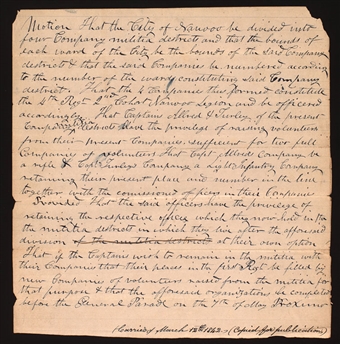 Motion That the City of Nauvoo be divided into
four Company militia districts and that the bounds of
each ward of the City be the bounds of the said Company
districts & that the said Companies be numbered according
to the number of the ward constituting said Company
district. That the 4 Companies thus formed constitute
the 4th Regt 2nd Cohort Nauvoo Legion and be officered
accordingly. That Captains Allred & Turley of the present
Company Districts have the privilege of raising volunteers
from their present Companies sufficient for two full
Companies of volunteers that Capt Allreds Company be
a rifle & Capt Turleys Company a light Infantry Company
retaining their present place and number in the line
together with the commissioned officers in their Companies
Provided That the said officers have the privilege of
retaining the respective offices which they now hold in
the militia districts in which they live after the aforesaid
division of the militia districts at their own option
That if the Captains wish to remain in the militia with
their Companies that their places in the first Regt be filled by
new Companies of volunteers raised from the militia for
that purpose & that the aforesaid organization be completed
before the General Parade on the 7th of May Proximo
Carried, March 12th 1842 (Copied for publication)